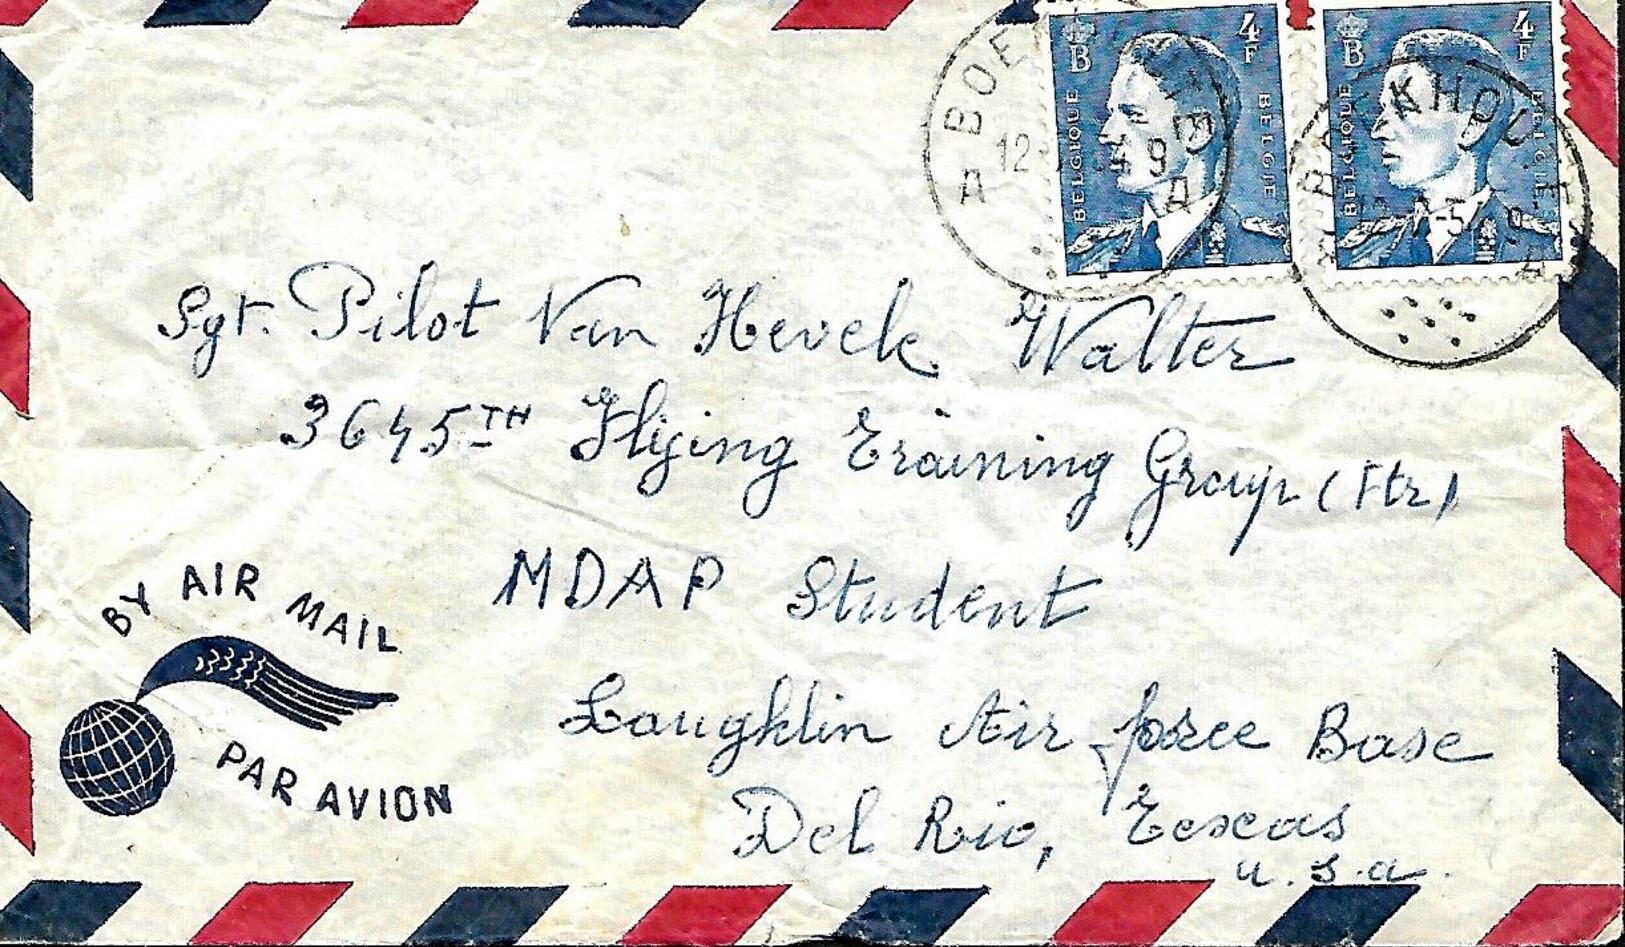 B
4
F
BELGIQUE
BELGIE
B
4
F
BELGIQUE
BELGIE
A 12 9 A
Sgt. Pilot Van Hevele Walter
3645TH Flying Training Group (Ftr)
MDAP Student
Laughlin Air force Base
Del Rio, Texas
U.S.A.
BY AIR MAIL
PAR AVION